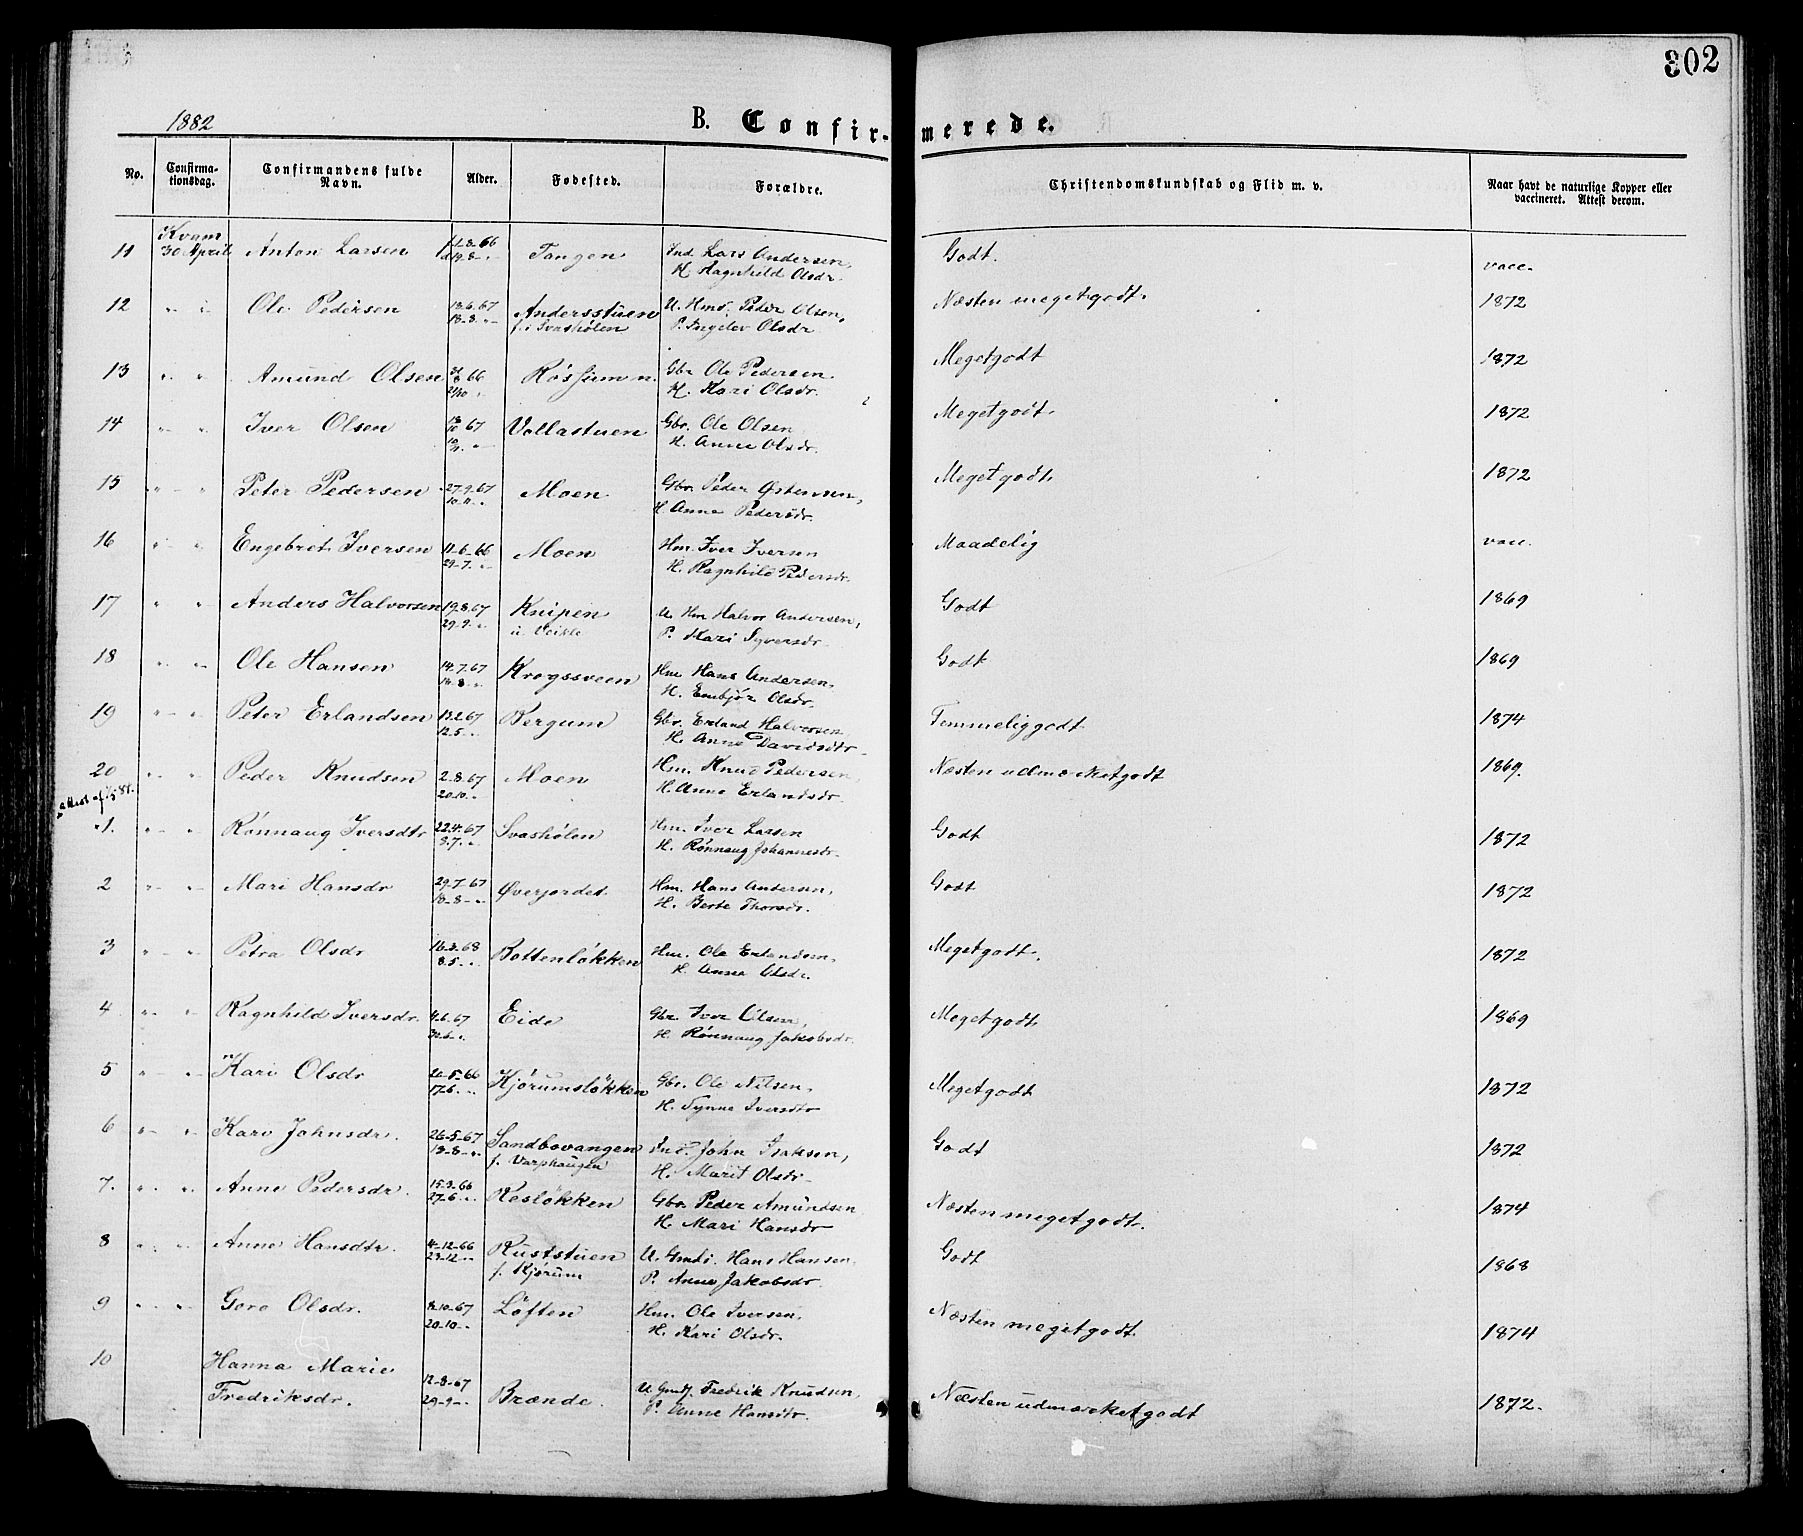 302
1882
B. Confirmerede.
No.
Confirmationsdag.
Confirmandens fulde Navn.
Alder.
Fødested.
Forældre.
Christendomskundskab og Flid m. v.
Naar havt de naturlige Kopper eller vaccineret. Attest derom.
Kvam
11 30 April Anton Larsen Tangen Ind Lars Andersen, Godt. vacc.
H. Ragnhild Olsdr.
12 " " Ole Pedersen 13.6.67 Andersstuen U. Hmd. Peder Olsen, Næsten megetgodt. 1872
18-8 " f. i Svashølen P. Ingelev Olsdr
13 " " Amund Olsen 66 Røssum n. Gbr. Ole Pedersen Megetgodt 1872
H. Kari Olsdr.
14 " " Iver Olsen 67 Vollastuen Gbr. Ole Olsen Megetgodt. 1872
H. Anne Olsdr.
15 " " Peter Pedersen 27.9.67 Moen Gbr. Peder Østensen, Megetgodt. 1872
10.11. " H. Anne Pedersdr.
16 " " Engebret Iversen 11-6-66 Moen Hm. Iver Iversen Maadelig vacc.
29-7. " H. Ragnhild Pedersdr.
17 " " Anders Halvorsen 19.8.67 Knipen U. Hm Halvor Andersen, Godt 1869
29.9. " u. Veikle P. Mari Syversdr.
18 " " Ole Hansen 14.7.67 Krogssveen Hm Hans Andersen, Godt 1869
18-8- " H. Embjør Olsdr.
19 " " Peter Erlandsen 13.2.67 Bergum Gbr. Erland Halvorsen Temmeliggodt 1874
12.5 " H. Anne Davidsdtr
20 " " Peder Knudsen 2-8.67 Moen Hm. Knud Pedersen Næsten udmærketgodt 1869.
20.10. " H. Anne Erlandsdr.
1. " " Rønnaug Iversdtr 22.4.67 Svashølen Hm. Iver Larsen Godt 1872
8.7. " H. Rønnaug Johannesdr
2 " " Mari Hansdr 29.7.67 Øverjordet Hm. Hans Andersen, Godt 1872
18-8- " H. Berte Thorsdr.
3 " " Petra Olsdr 16-3.68 Bottenløkken Hm. Ole Erlandsen, Megetgodt. 1872
8.5 " H. Anne Olsdr.
4 " " Ragnhild Iversdr. 4.6.67 Eide Gbr Iver Olsen, Megetgodt 1869
H. Rønnaug Jakobsdr.
5 " " Kari Olsdr 20-5-66 Kjørumsløkken Gbr. Ole Nilsen, Megetgodt 1872
17.6. " H. Synne Iversdtr
6 " " Kari Johnsdr. 26-5-67 Sandbovangen Ind John Isaksen, Godt 1872
18-8- " f. Varphaugen H. Marit Olsdr
7. " " Anne Pedersdr. 15.3.66 Rosløkken Gbr. Peder Amundsen Næsten megetgodt. 1874
27.6. " H. Mari Hansdr
8 " " Anne Hansdtr. 4-12-66 Ruststuen U. Gmds. Hans Hansen, Godt 1868
23-12 " f. Kjørum P. Anne Jakobsdr.
9 " " Goro Olsdr. 8-10-67 Løften Hm. Ole Iversen. Næsten megetgodt. 1874
20-10- " H. Kari Olsdr.
10 Hanna Marie
Fredriksdr. 12-8-67 Brænde. U. Gmds. Fredrik Knudsen, Næsten udmærketgodt 1872.
29-9- " P. Anne Hansdtr.